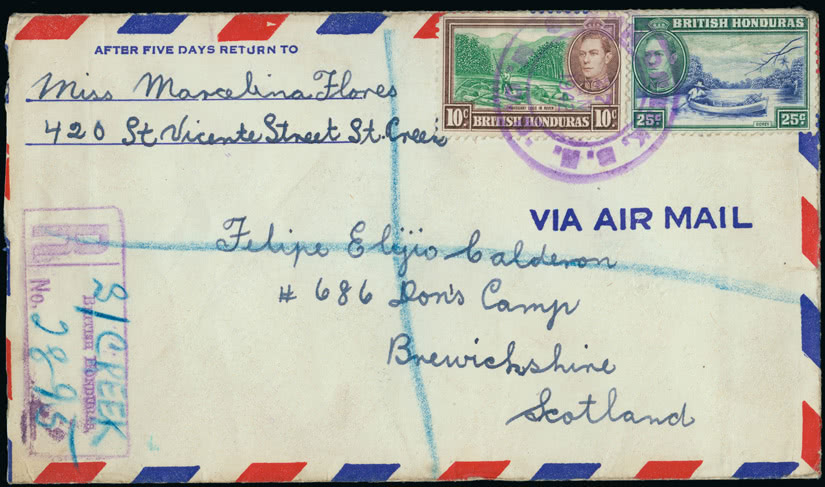 AFTER FIVE DAYS RETURN TO
Miss Marcelina Flores
420 St. Vicente Street St. Creek
10c BRITISH HONDURAS 10c
BRITISH HONDURAS
25c 25c
VIA AIR MAIL
Felipe Elijio Calderon
# 686 Don's Camp
Brewickshire
Scotland
R
S/CREEK
BRITISH HONDURAS
No. 2895